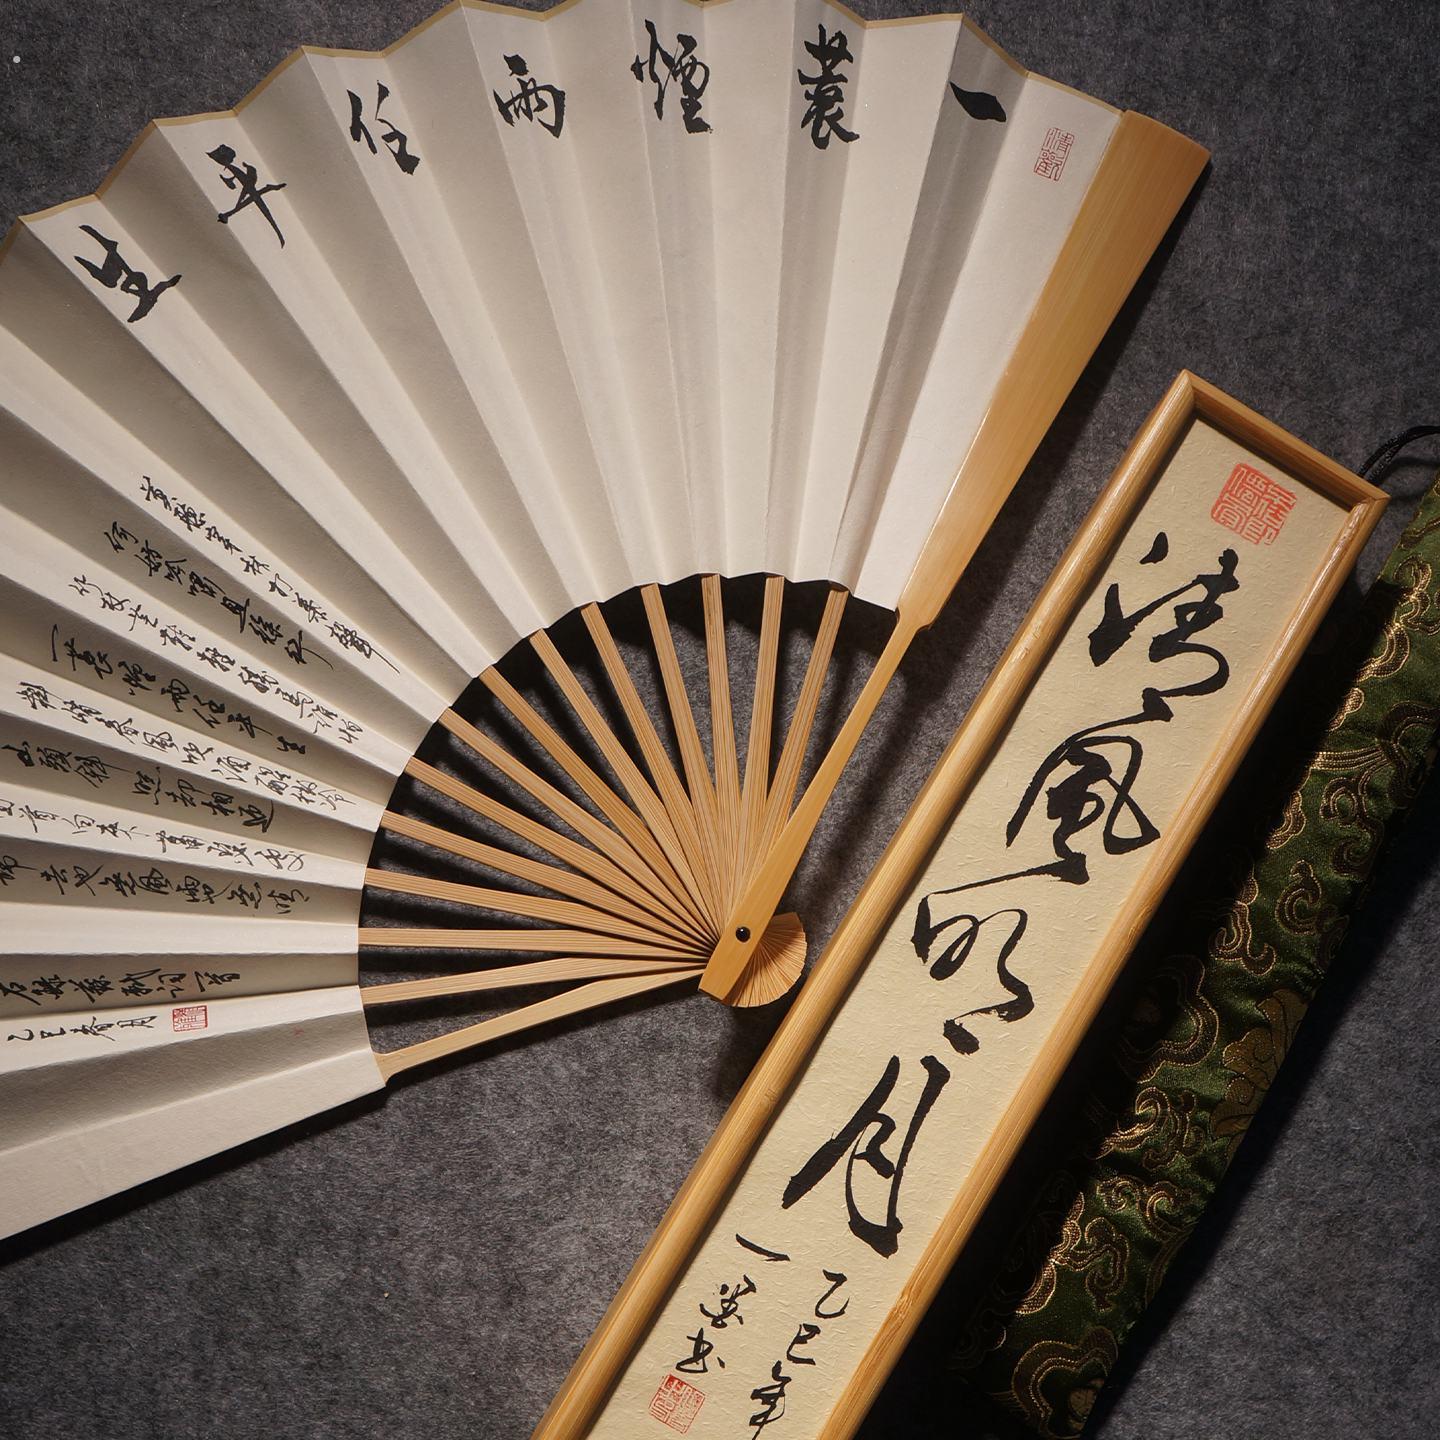 一蓑煙雨任平生
莫聽穿林打葉聲
何妨吟嘯且徐行
竹杖芒鞋輕勝馬誰怕
一蓑煙雨任平生
料峭春風吹酒醒微冷
山頭斜照却相迎
回首向來蕭瑟處
歸去也無風雨也無晴
右錄蘇軾詞一首
乙巳春月
清風明月
乙巳年